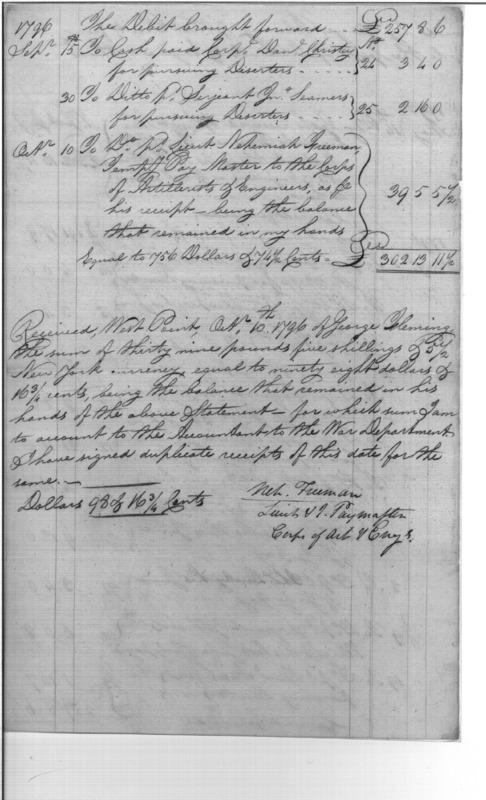 1796 The Debit brought forward £ 257 8 6
Sepr. 15th To Cash paid Corpl. Danl. Christey No.
for pursuing Deserters 24 3 4 0
30 To Ditto pd. Serjeant Jno. Seamers
for pursuing Deserters 25 2 16 0
Octr. 10 To Do. pd. Lieut Nehemiah Freeman
Pay Master to the Corps
of Artillerists & Engineers, as
his receipt being the balance 39 5 5 1/2
that remained in my hands
Equal to 756 Dollars & 74 1/2 Cents £ 302 13 11 1/2
Received, West Point Octr. 10th. 1796 of George Fleming
the sum of thirty nine pounds five shillings & 5 1/2
New York currency, equal to ninety eight dollars &
16 3/4 cents, being the balance that remained in his
hands of the above Statement for which sum I am
to account to the Accountant to the War Department
I have signed duplicate receipts of this date for the
same.
Dollars 98 & 16 3/4 Cents
Neh. Freeman
Lieut & Paymaster
Corps of Art & Engrs.